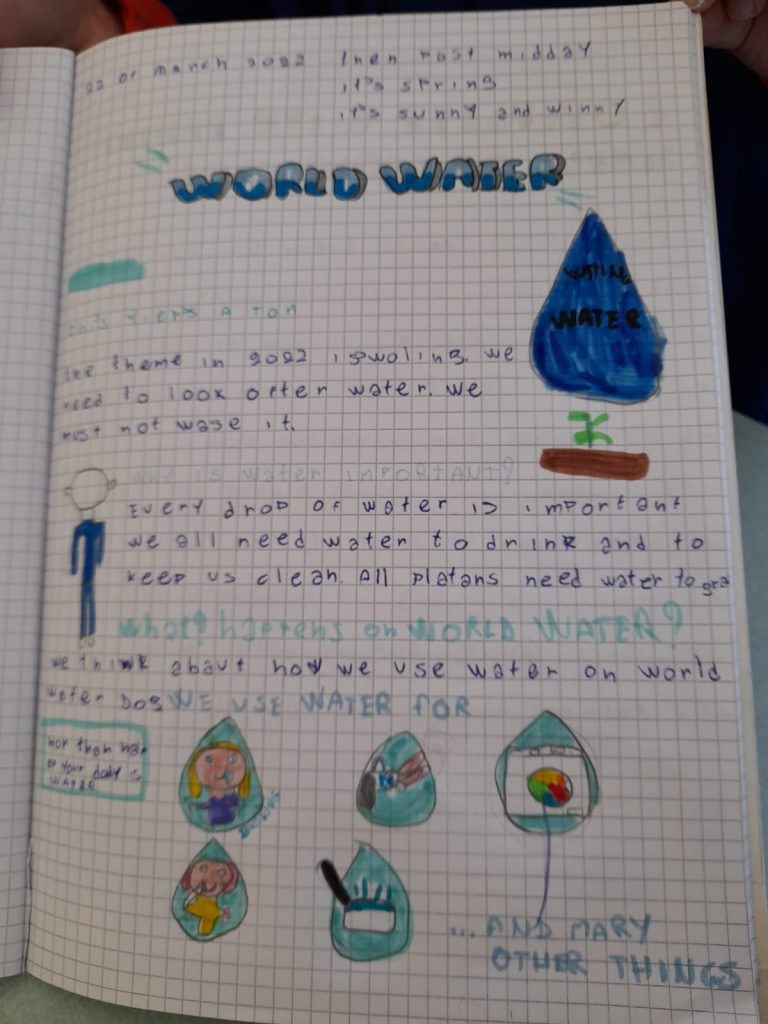 22 of march 2022 then past midday
it's spring
it's sunny and winny
WORLD WATER
WATING
WATER
this yiers A TON
The theme in 2022 is woling. we
need to look ofter water. we
must not wase it.
why is water imPORTANT?
Every drop of water is important
we all need water to drink and to
keep us clean. All platans need water to gro
what happens on WORLD WATER?
we think abaut how we use water on world
water Dos WE USE WATER FOR
mor then half
of your body is
WATER
... AND MARY
OTHER THINGS